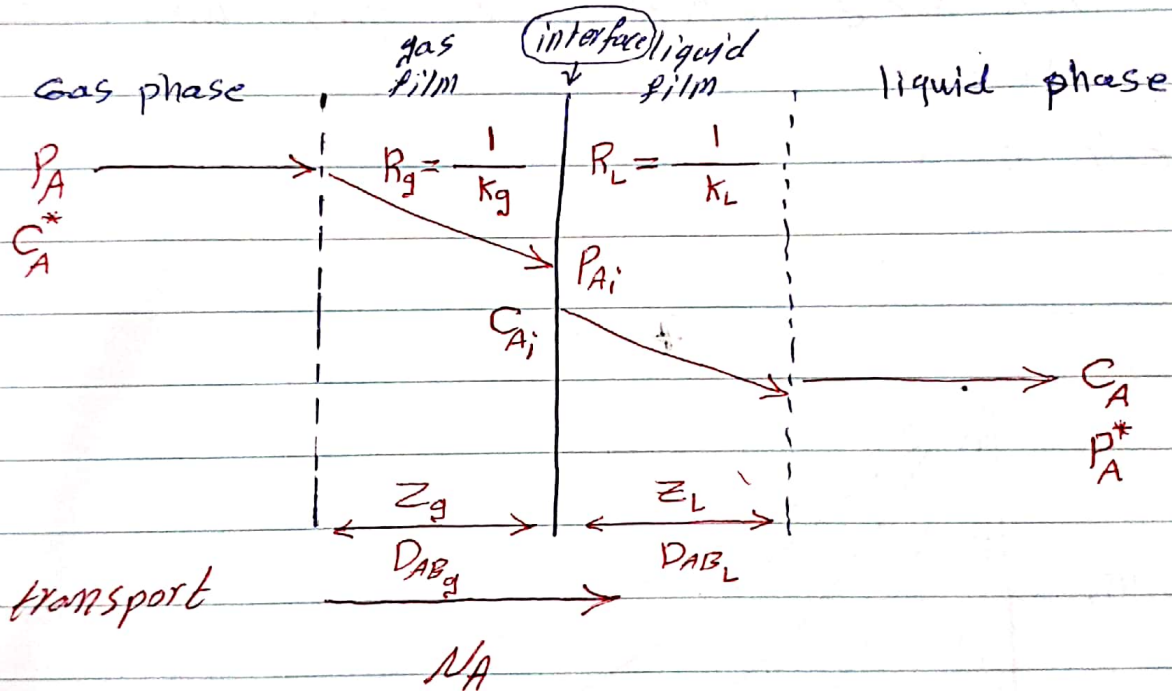 gas film
interface
liquid film
Gas phase
liquid phase
P_A
C_A^*
R_g = 1/k_g
R_L = 1/k_L
P_{A_i}
C_{A_i}
C_A
P_A^*
Z_g
Z_L
D_{AB_g}
D_{AB_L}
transport
N_A